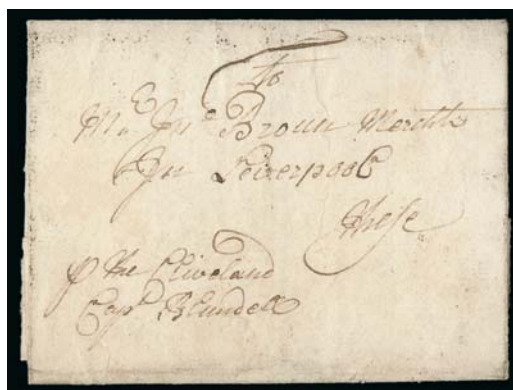 To
Mr. Jno. Broun Mercht
In Leiverpool
These
p the Cliveland
Capt. Blundell